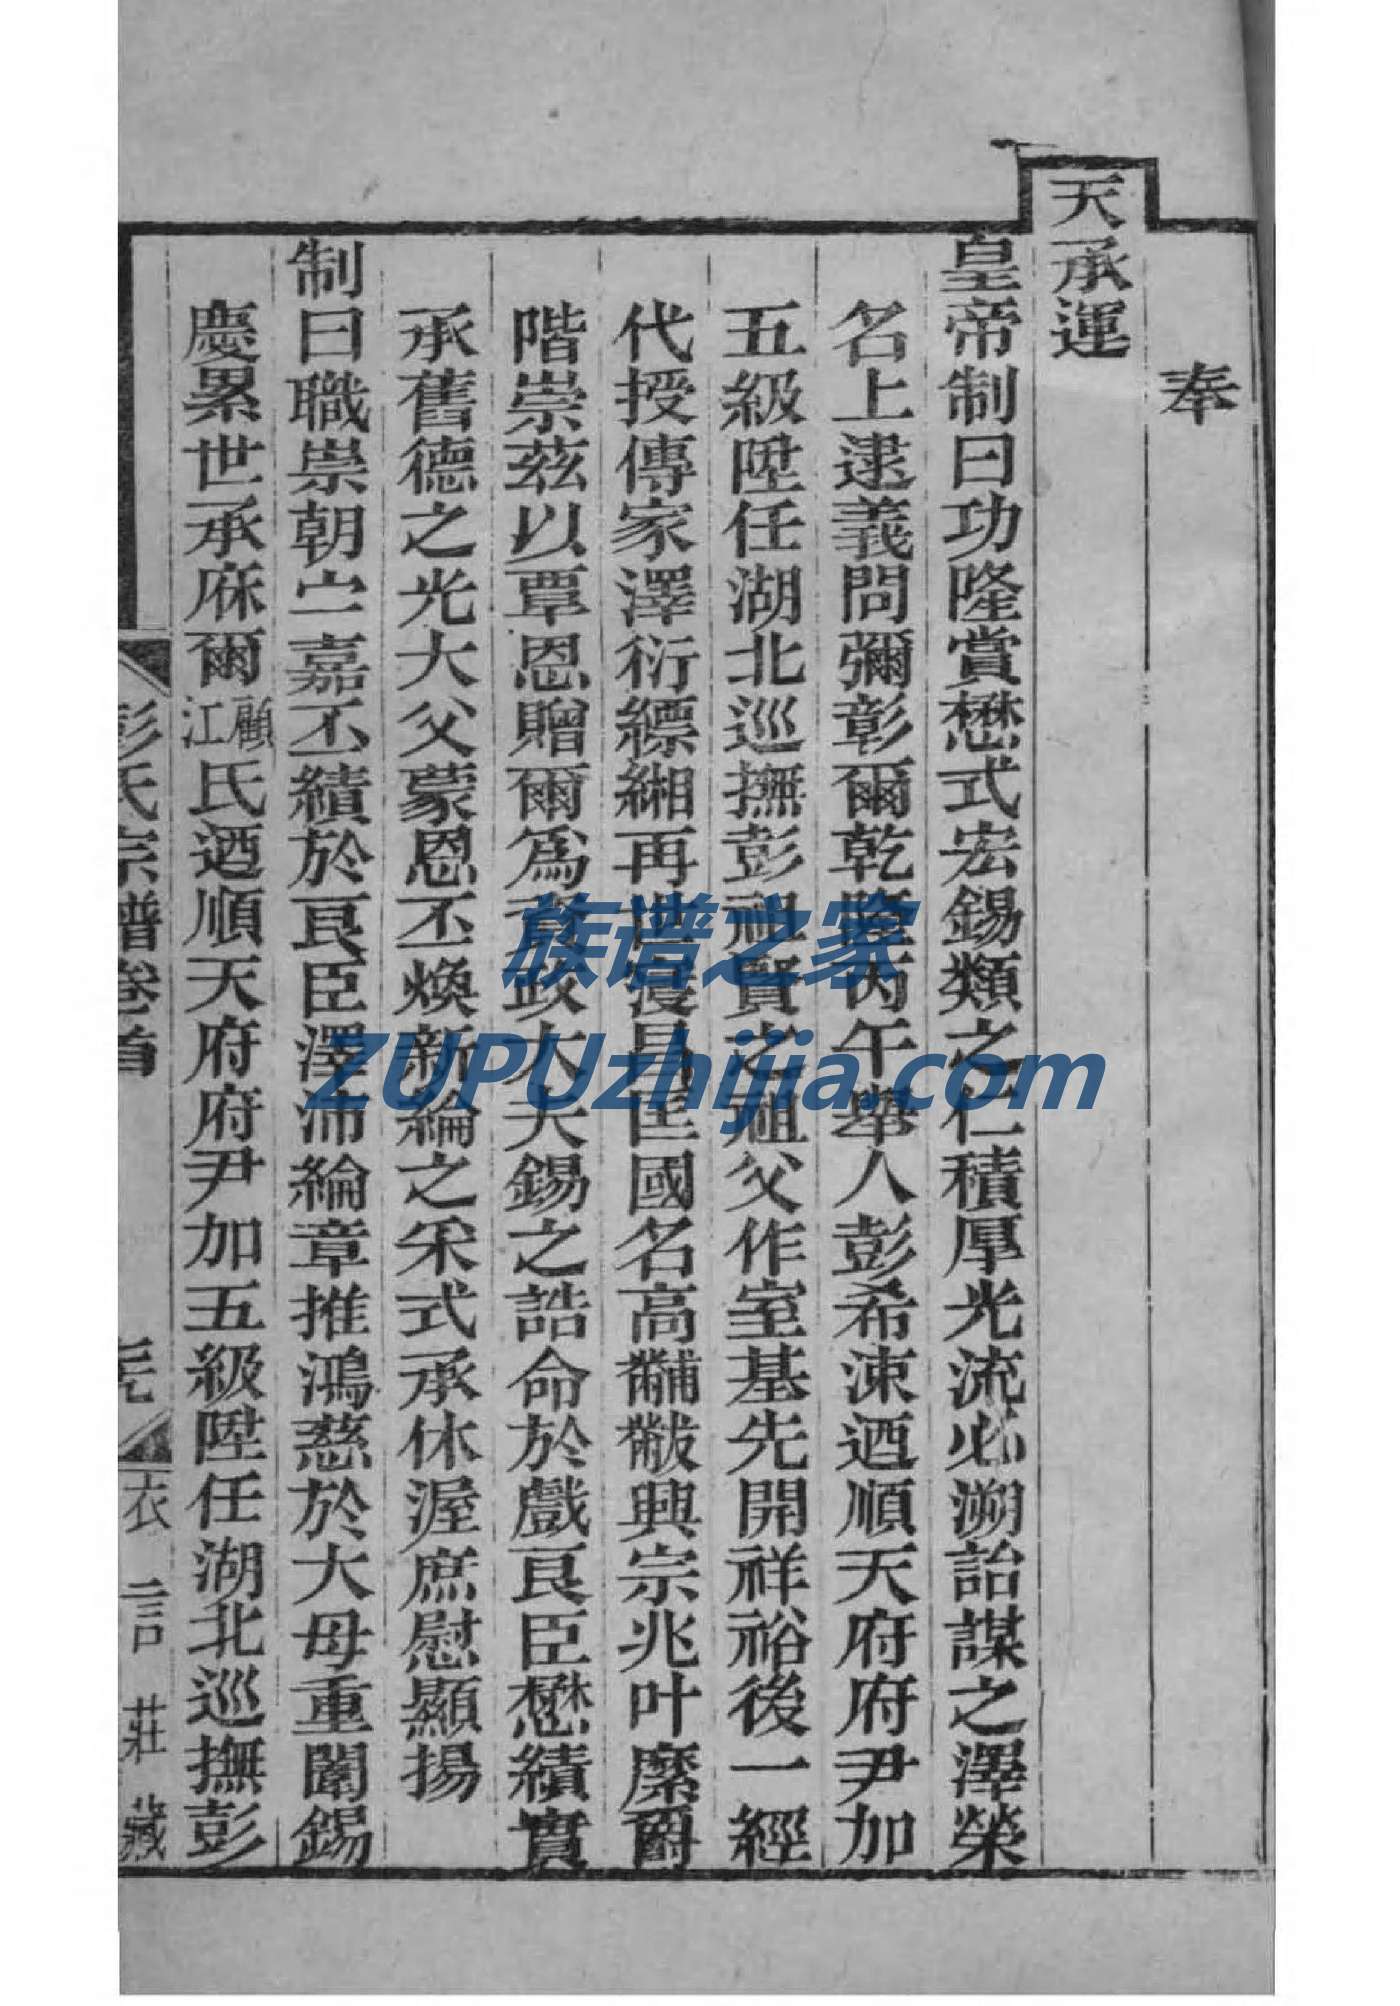 奉
天承運
皇帝制曰功隆賞懋式宏錫類之仁積厚光流必溯詒謀之澤榮
名上逮義問彌彰爾乾隆丙午舉人彭希涑迺順天府府尹加
五級陞任湖北巡撫彭祖賢之祖父作室基先開祥裕後一經
代授傳家澤衍縹緗再世寖昌匡國名高黼黻興宗兆叶縻爵
階崇茲以覃恩贈爾爲資政大夫錫之誥命於戲良臣懋績實
承舊德之光大父蒙恩丕煥新綸之采式承休渥庶慰顯揚
制曰職崇朝宁嘉丕績於良臣澤沛綸章推鴻慈於大母重闈錫
慶累世承庥爾顧江氏迺順天府府尹加五級陞任湖北巡撫彭
彭氏宗譜卷首
衣言莊藏
族谱之家
ZUPUzhijia.com